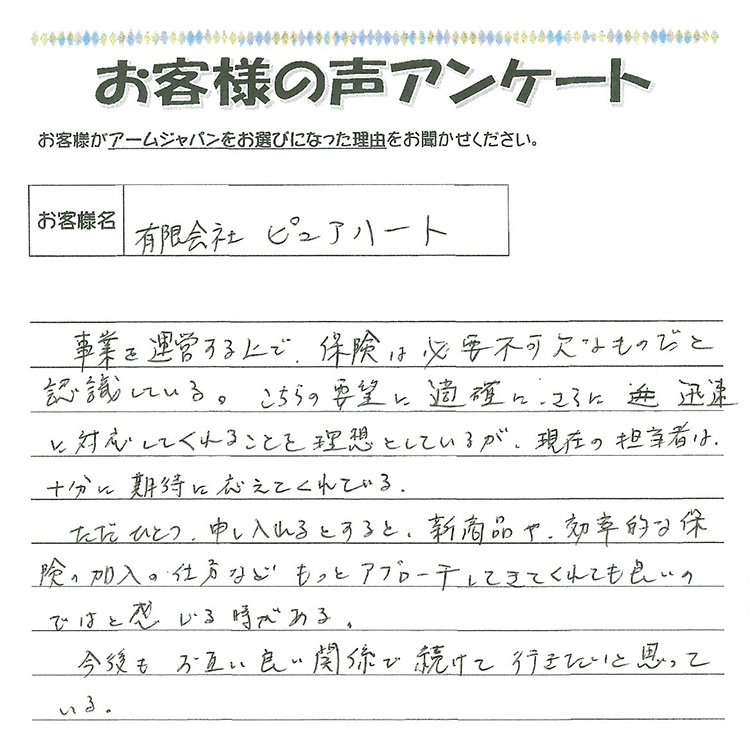 お客様の声アンケート
お客様がアームジャパンをお選びになった理由をお聞かせください。
お客様名
有限会社 ピュアハート
事業を運営する上で、保険は必要不可欠なものだと
認識している。こちらの要望に適確に、さらに 迅速
に対応してくれることを理想としているが、現在の担当者は、
十分に期待に応えてくれている。
ただひとつ、申し入れるとすると、新商品や、効率的な保
険の加入の仕方など もっとアプローチしてきてくれても良いの
ではと感じる時がある。
今後も お互い良い関係で続けて行きたいと思って
いる。